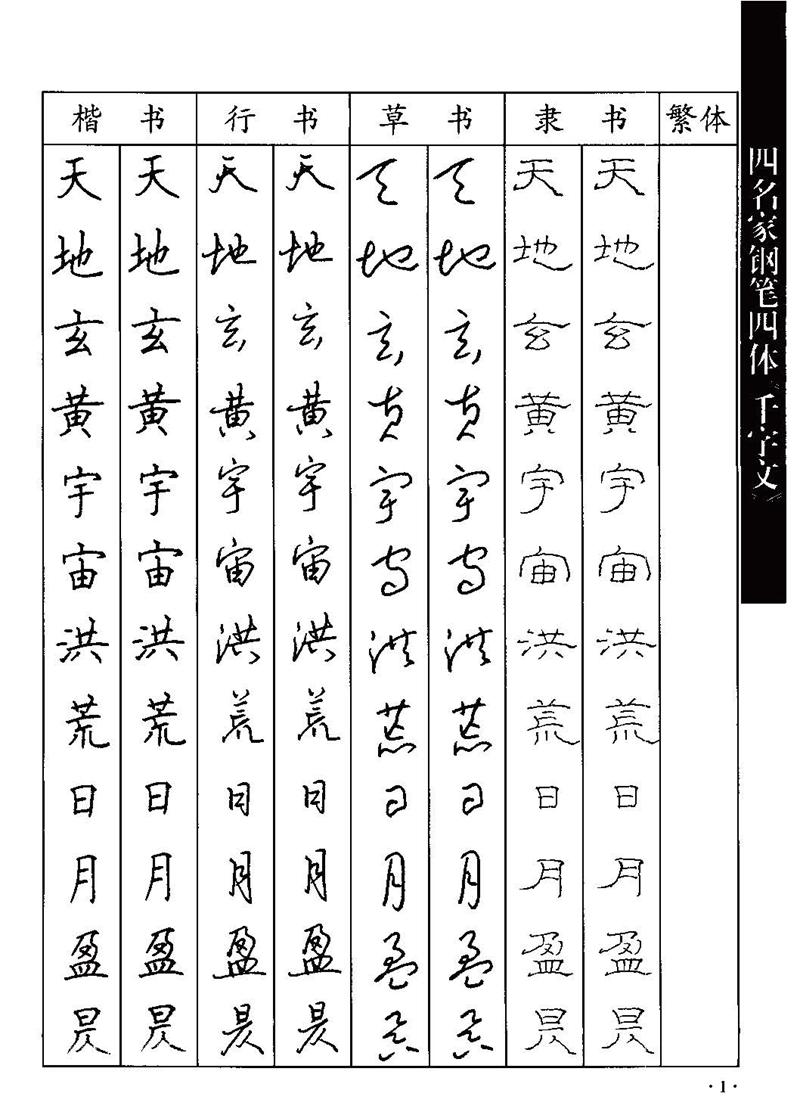 四名家钢笔四体《千字文》
楷书 行书 草书 隶书 繁体
天地玄黄宇宙洪荒日月盈昃
天地玄黄宇宙洪荒日月盈昃
天地玄黄宇宙洪荒日月盈昃
天地玄黄宇宙洪荒日月盈昃
天地玄黄宇宙洪荒日月盈昃
天地玄黄宇宙洪荒日月盈昃
天地玄黄宇宙洪荒日月盈昃
天地玄黄宇宙洪荒日月盈昃
·1·